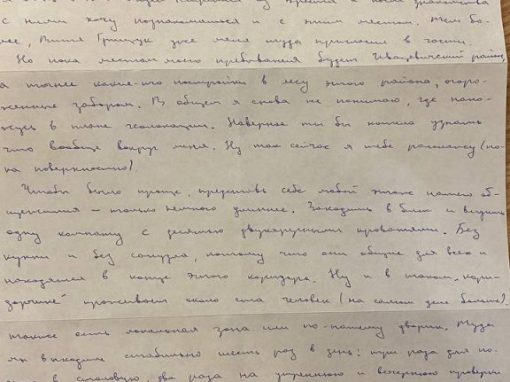 с ними хочу познакомиться и с этим местом. Тем бо-
лее, Витя Грищук уже меня туда пригласил в гости.
Но пока местом моего пребывания будет Ивацевичский район,
а точнее какие-то постройки в лесу этого района, огоро-
женные забором. В общем я снова не понимаю, где нахо-
жусь в плане геолокации. Наверное ты бы хотела узнать
что вообще вокруг меня. Ну так сейчас я тебе расскажу (по-
ка поверхностно).
Чтобы было проще, представь себе любой этаж нашего об-
щежития – только немного длиннее. Заходишь в блок и видишь
одну комнату с десятью двухъярусными кроватями. Без
кухни и без санузла, потому что они общие для всех и
находятся в конце этого коридора. Ну и в таком „кори-
дорчике" проживает около ста человек (на самом деле больше).
также есть локальная зона или по-нашему дворик. Туда
мы выходим стабильно шесть раз в день: три раза для по-
в столовую, два раза на утреннюю и вечернюю проверки